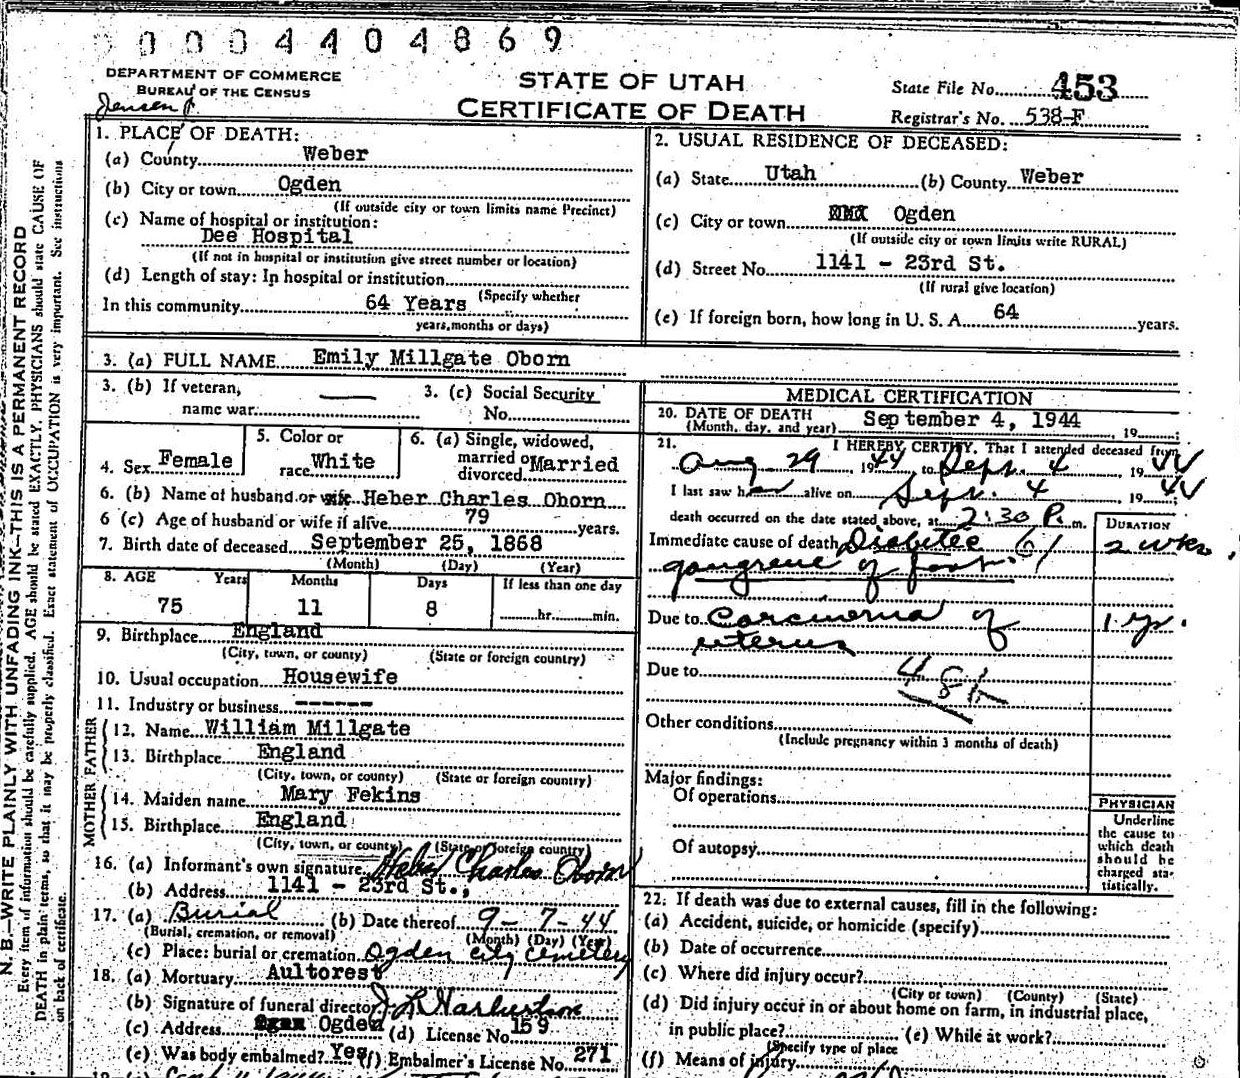 0004404869
DEPARTMENT OF COMMERCE
BUREAU OF THE CENSUS
STATE OF UTAH
CERTIFICATE OF DEATH
State File No. 453
Registrar's No. 538-F
1. PLACE OF DEATH:
(a) County Weber
(b) City or town Ogden
(If outside city or town limits name Precinct)
(c) Name of hospital or institution:
Dee Hospital
(If not in hospital or institution give street number or location)
(d) Length of stay: In hospital or institution
In this community 64 Years (Specify whether
years, months or days)
2. USUAL RESIDENCE OF DECEASED:
(a) State Utah (b) County Weber
(c) City or town Ogden
(If outside city or town limits write RURAL)
(d) Street No. 1141 - 23rd St.
(If rural give location)
(e) If foreign born, how long in U. S. A. 64 years.
3. (a) FULL NAME Emily Millgate Oborn
3. (b) If veteran,
name war.
3. (c) Social Security
No.
4. Sex Female
5. Color or
race White
6. (a) Single, widowed,
married or
divorced Married
6. (b) Name of husband or wife Heber Charles Oborn
6 (c) Age of husband or wife if alive 79 years.
7. Birth date of deceased September 25, 1868
(Month) (Day) (Year)
8. AGE Years Months Days If less than one day
75 11 8 hr. min.
9. Birthplace England
(City, town, or county) (State or foreign country)
10. Usual occupation Housewife
11. Industry or business ------
FATHER
12. Name William Millgate
13. Birthplace England
(City, town, or county) (State or foreign country)
MOTHER
14. Maiden name Mary Fekins
15. Birthplace England
(City, town, or county) (State or foreign country)
16. (a) Informant's own signature Heber Charles Oborn
(b) Address 1141 - 23rd St.,
17. (a) Burial (b) Date thereof 9-7-44
(Burial, cremation, or removal) (Month) (Day) (Year)
(c) Place: burial or cremation Ogden city cemetery
18. (a) Mortuary Aultorest
(b) Signature of funeral director
(c) Address Ogden (d) License No. 159
(e) Was body embalmed? Yes (f) Embalmer's License No. 271
MEDICAL CERTIFICATION
20. DATE OF DEATH
(Month, day, and year) September 4, 1944, 19
21. I HEREBY CERTIFY, That I attended deceased from
Aug 29 1944 to Sept. 4 19 44
I last saw her alive on Sept. 4 19 44
death occurred on the date stated above, at 2:30 P. m.
DURATION
Immediate cause of death Diabetic 61 2 wks.
gangrene of foot.
Due to Carcinoma of 1 yr.
uterus
Due to
Other conditions
(Include pregnancy within 3 months of death)
Major findings:
Of operations
Of autopsy
PHYSICIAN
Underline
the cause to
which death
should be
charged sta-
tistically.
22. If death was due to external causes, fill in the following:
(a) Accident, suicide, or homicide (specify)
(b) Date of occurrence
(c) Where did injury occur?
(City or town) (County) (State)
(d) Did injury occur in or about home on farm, in industrial place,
in public place? (e) While at work?
(Specify type of place
(f) Means of injury
N. B.—WRITE PLAINLY WITH UNFADING INK—THIS IS A PERMANENT RECORD
Every item of information should be carefully supplied. AGE should be stated EXACTLY. PHYSICIANS should state CAUSE OF
DEATH in plain terms, so that it may be properly classified. Exact statement of OCCUPATION is very important. See instructions
on back of certificate.